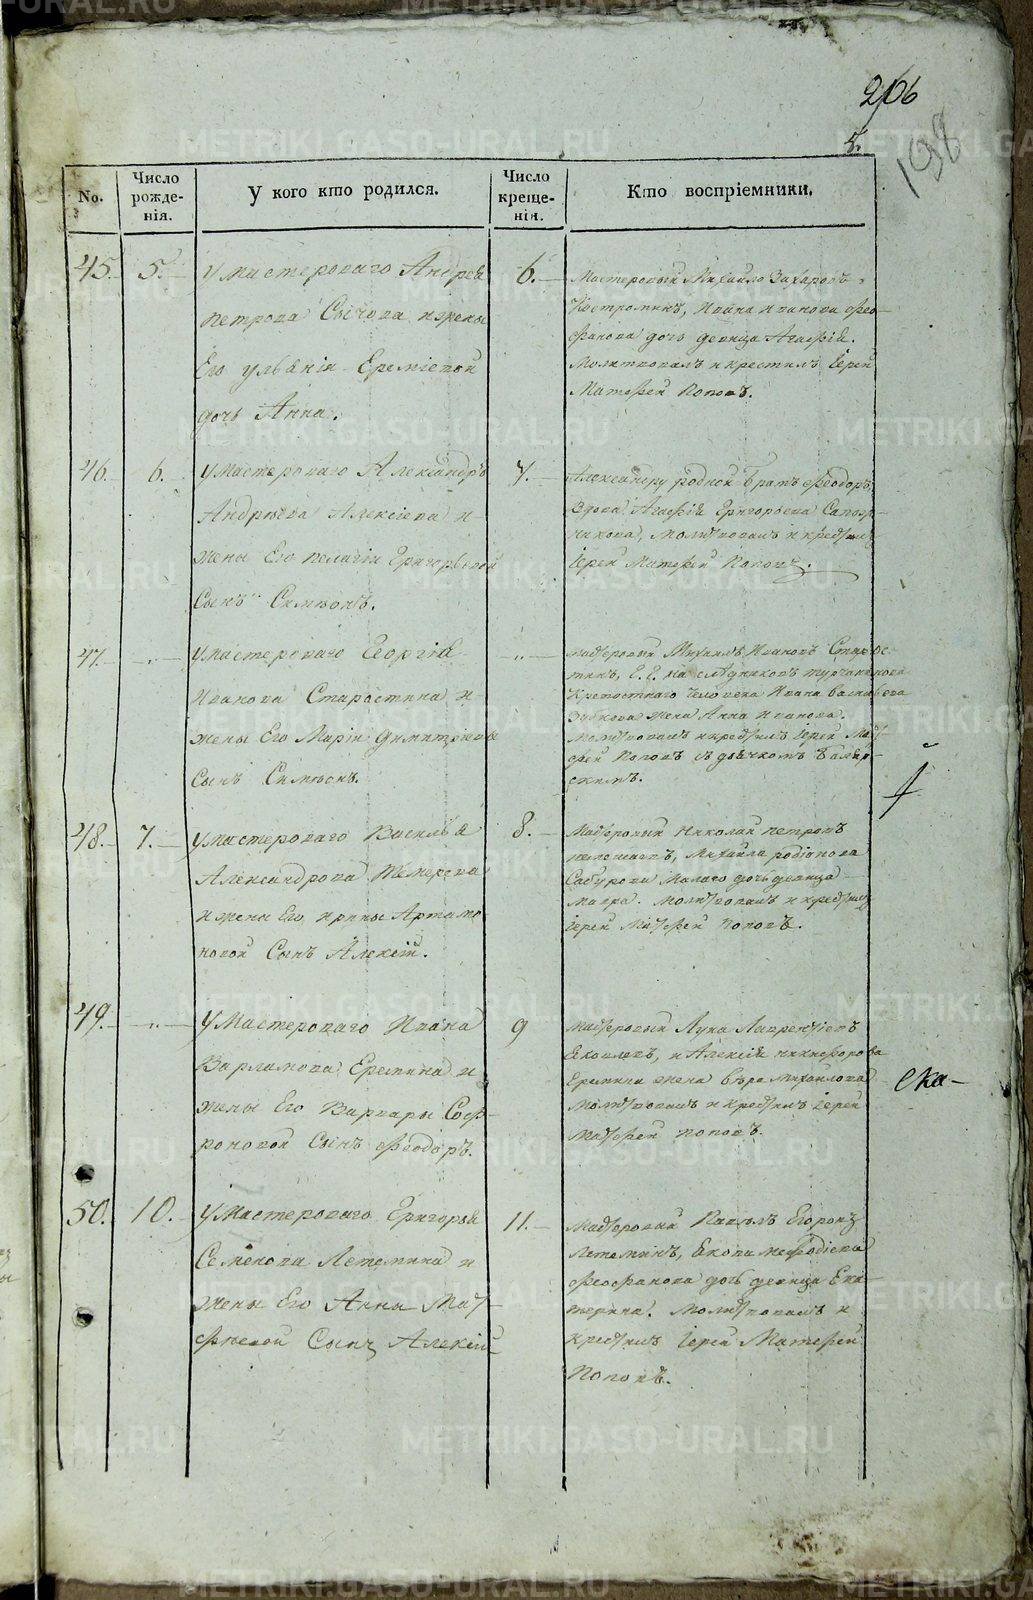 206
198
5.
No.
Число рожде-
нія.
У кого кто родился.
Число креще-
нія.
Кто воспріемники.
45. 5. У мастероваго Андрея
Петрова Сычова и жены
Его Ульяніи Еремѣевой
дочь Анна.
6. Мастеровый Михайло Захаровъ
Костроминъ, Ивана Иванова Фео-
фанова дочь девица Агафія.
Молитвовалъ и крестилъ Іерей
Матфей Поповъ.
46. 6. У мастероваго Александра
Андрѣева Алексіева и
жены Его Пелагіи Григорьевой
Сынъ Симеонъ.
7. Александру родной братъ Феодоръ,
Вдова Агафія Григорьева Сапож-
никова, молитвовалъ и крестилъ
Іерей Матфей Поповъ.
47. -„- У мастероваго Георгія
Иванова Старостина и
жены Его Маріи Димитріевой
Сынъ Симеонъ.
-„- мастеровый Михаилъ Ивановъ Старос-
тинъ, наслѣдниковъ Турчанинова
Крепостнаго человека Ивана Васильева
Зыкова жена Анна Иванова.
молитвовалъ и крестилъ Іерей Мат-
фей Поповъ съ дьячкомъ
скимъ.
48. 7. У мастероваго Василья
Александрова
и жены Его Ирины Артамо-
новой Сынъ Алексій.
8. Мастеровый Николай Петровъ
Михаила Родіонова
Сабурова Малаго дочь девица
Мавра. молитвовалъ и крестилъ
Іерей Матфей Поповъ.
49. -„- У Мастероваго Ивана
Варламова Еремина и
жены Его Варвары Соф-
роновой Сынъ Феодоръ.
9 мастеровый Лука Лаврентіевъ
Яковлевъ, и Алексія Никифорова
Еремина жена Вѣра Михайлова
Молитвовалъ и крестилъ Іерей
Матфей Поповъ.
ека-
50. 10. У Мастероваго Григорья
Семенова Летемина и
жены Его Анны Мат-
фѣевой Сынъ Алексій
11. Мастеровый Павелъ Егоровъ
Летеминъ, Якова Мефодіева
Феофанова дочь девица Ека-
терина. Молитвовалъ и
крестилъ Іерей Матфей
Поповъ.